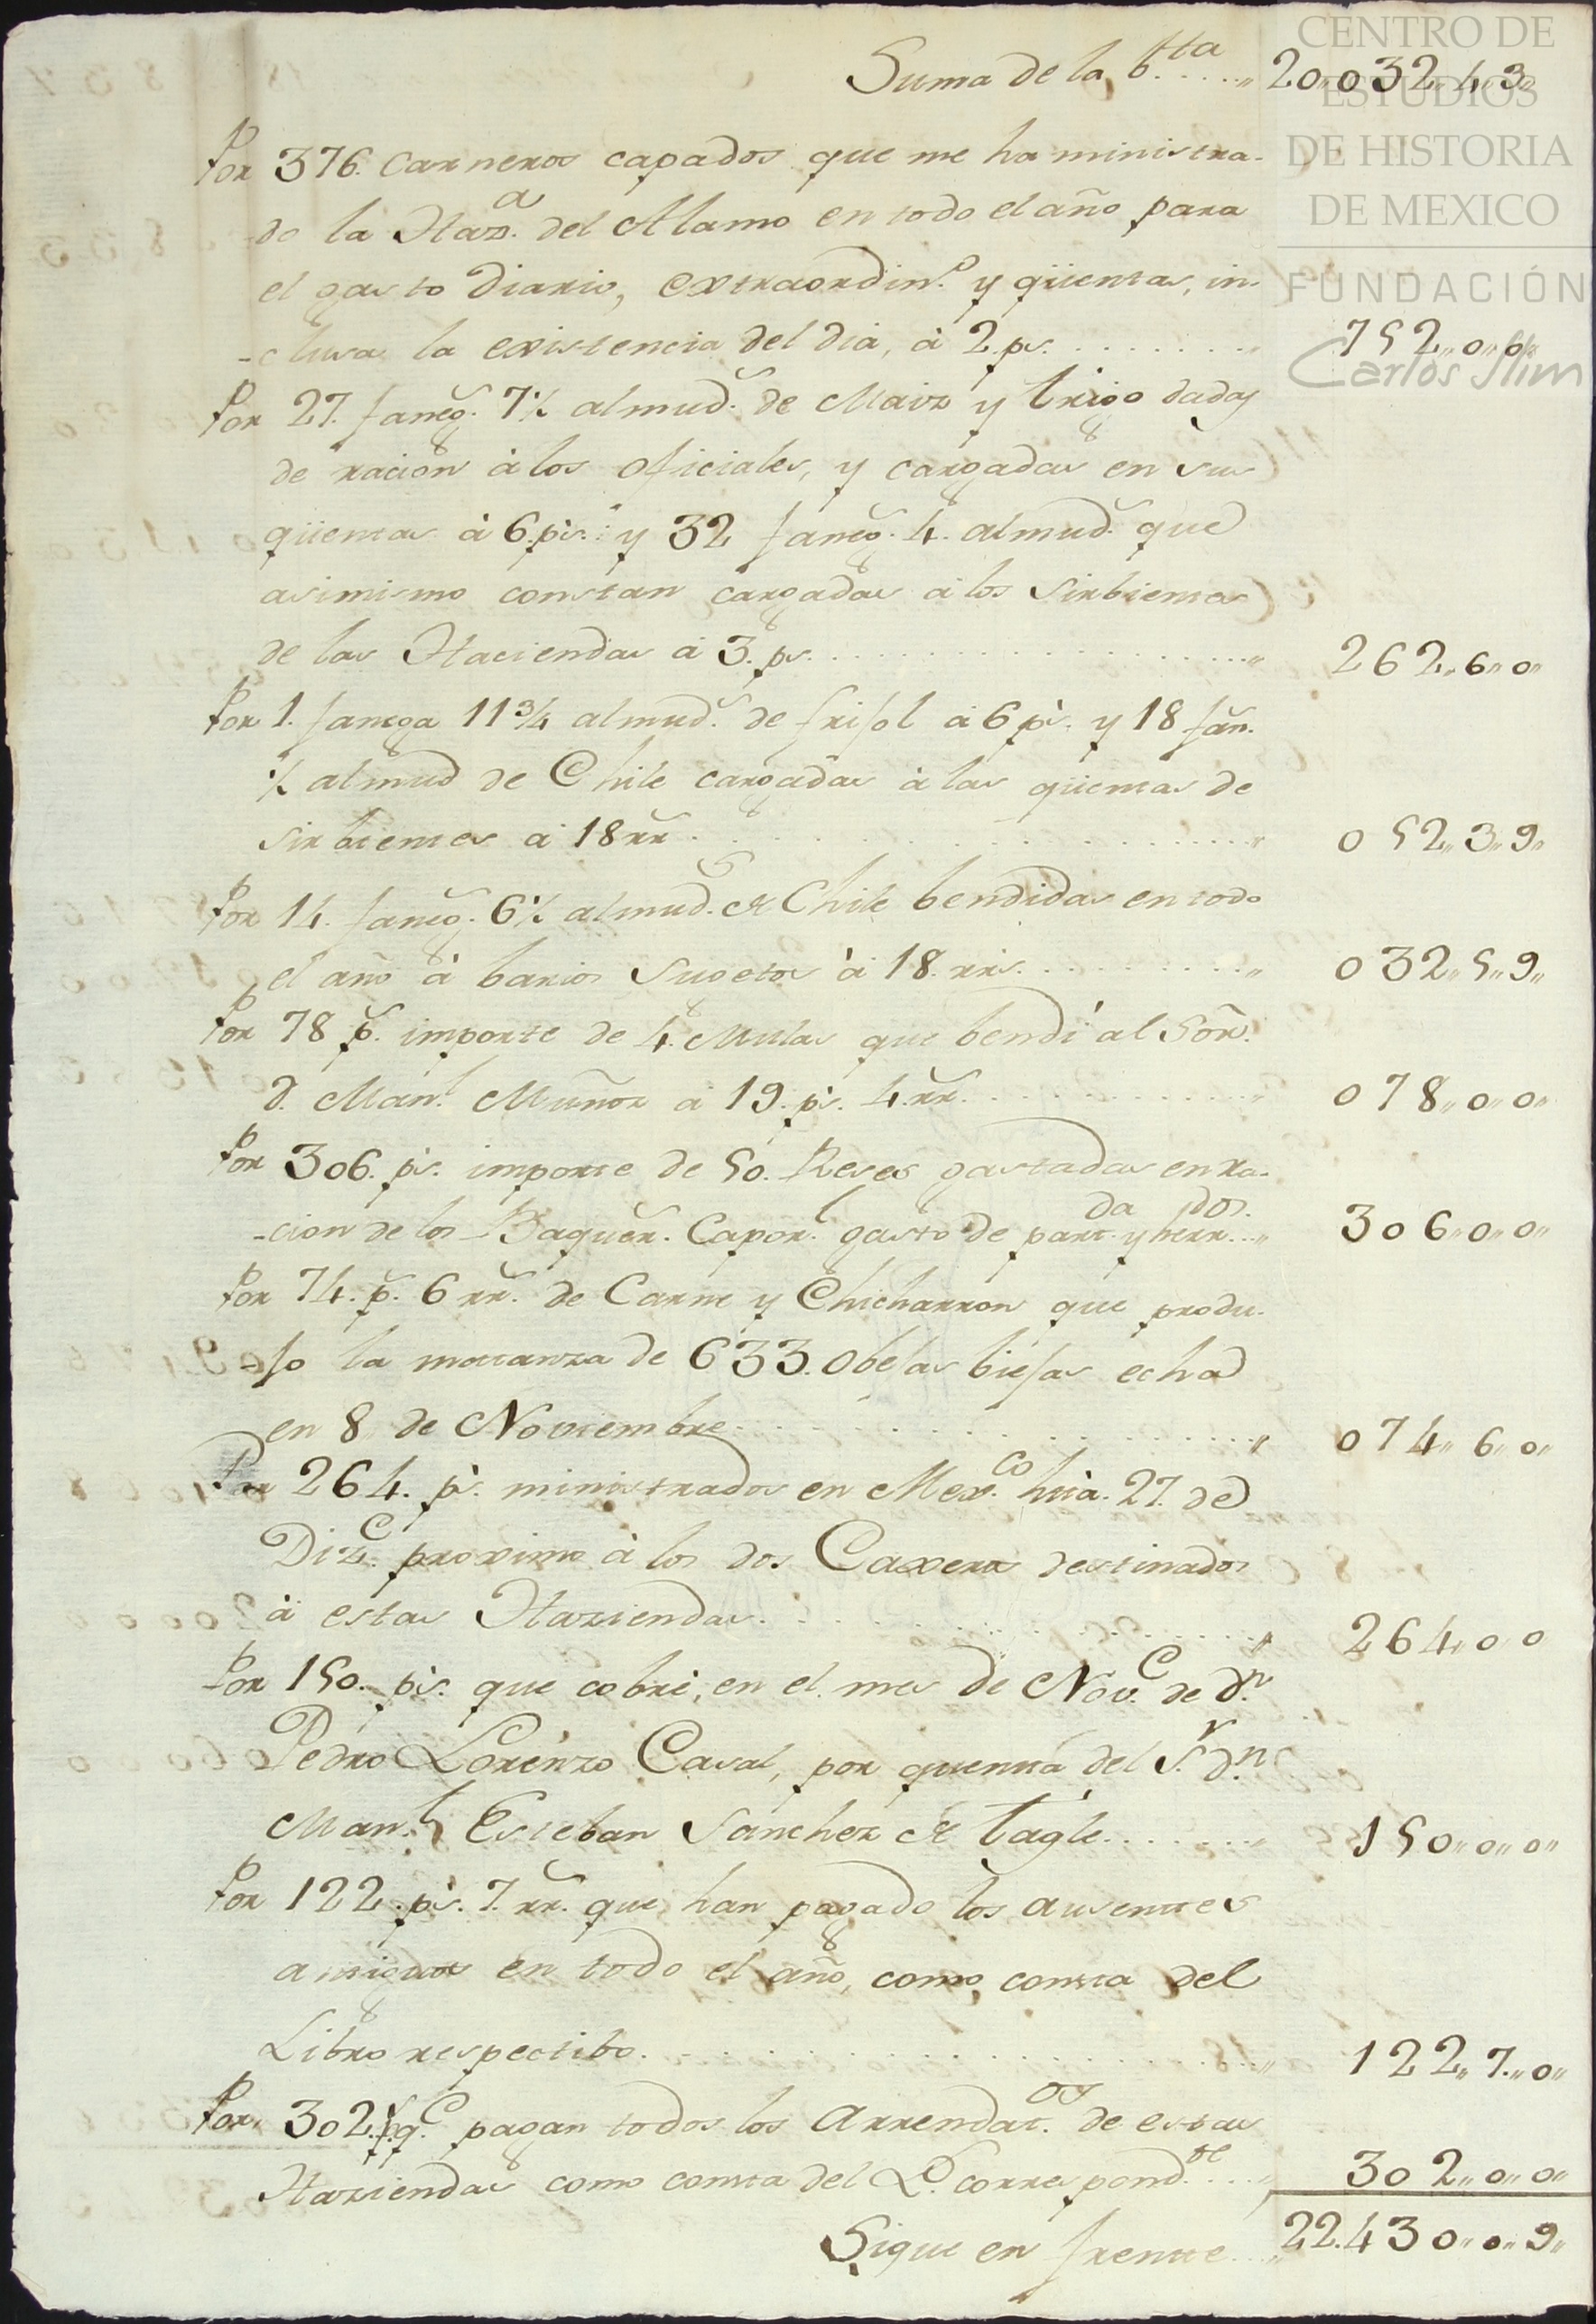 CENTRO DE
ESTUDIOS
DE HISTORIA
DE MEXICO
FUNDACIÓN
Carlos Slim
Suma de la b.ta ..... 20,,032,,4,,3,,
Por 376. Carneros capados que me ha ministra-
-do la Haz.a del Alamo en todo el año para
el gasto Diario, extraordin.o y qüentas, in-
-clusa la existencia del dia, à 2 ps. ....... 752,,0,,0,,
Por 27. faneg.s 7½ almud.s de Maiz y trigo dadas
de racion à los oficiales, y cargadas en sus
qüentas à 6 ps. y 32 faneg.s 4. almud.s que
asimismo constan cargadas a los Sirbientes
de las Haciendas a 3. ps. ....... 262,,6,,0,,
Por 1. fanega 11¾ almud.s de frisol a 6 ps. y 18 fan.s
½ almud de Chile cargadas à las qüentas de
sirbientes a 18 rr.s ....... 052,,3,,9,,
Por 14. faneg.s 6½ almud.s de Chile bendidas en todo
el año à barios Sugetos à 18. rrs. ....... 032,,5,,9,,
Por 78 p.s importe de 4. Mulas que bendi al Sõr.
d. Man.l Muñoz a 19. ps. 4 rr.s ....... 078,,0,,0,,
Por 306. ps. importe de 50. Reses gastadas en ra-
-cion de los Baquer.s Capor.l gasto de part.da y herr.dos. ... 306,,0,,0,,
Por 74. p.s 6 rr.s de Carne y Chicharron que produ-
-jo la matanza de 633. Obejas biejas echa
en 8 de Noviembre ....... 074,,6,,0,,
Por 264. ps. ministrados en Mex.co hasta 27. de
Diz.e proximo à los dos Caxeros destinados
à estas Haziendas ....... 264,,0,,0
Por 150. ps. que cobrè, en el mes de Nov.e de d.n
Pedro Lorenzo Casal, por quenta del S.r d.n
Man.l Esteban Sanchez de tagle ....... 150,,0,,0,,
Por 122. ps. 7. rr.s que han pagado los ausentes
antiguos en todo el año, como consta del
Libro respectibo ....... 122,,7,,0,,
Por 302. p.s q.e pagan todos los Arrendat.os de estas
Haziendas como consta del L.o correspond.te .... 302,,0,,0,,
Sigue en frente ... 22.430,,0,,9,,